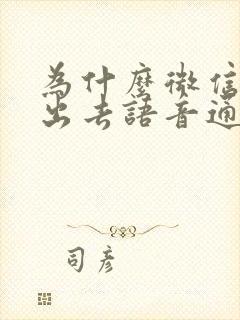 為什麼微信
出去語音通
司彥